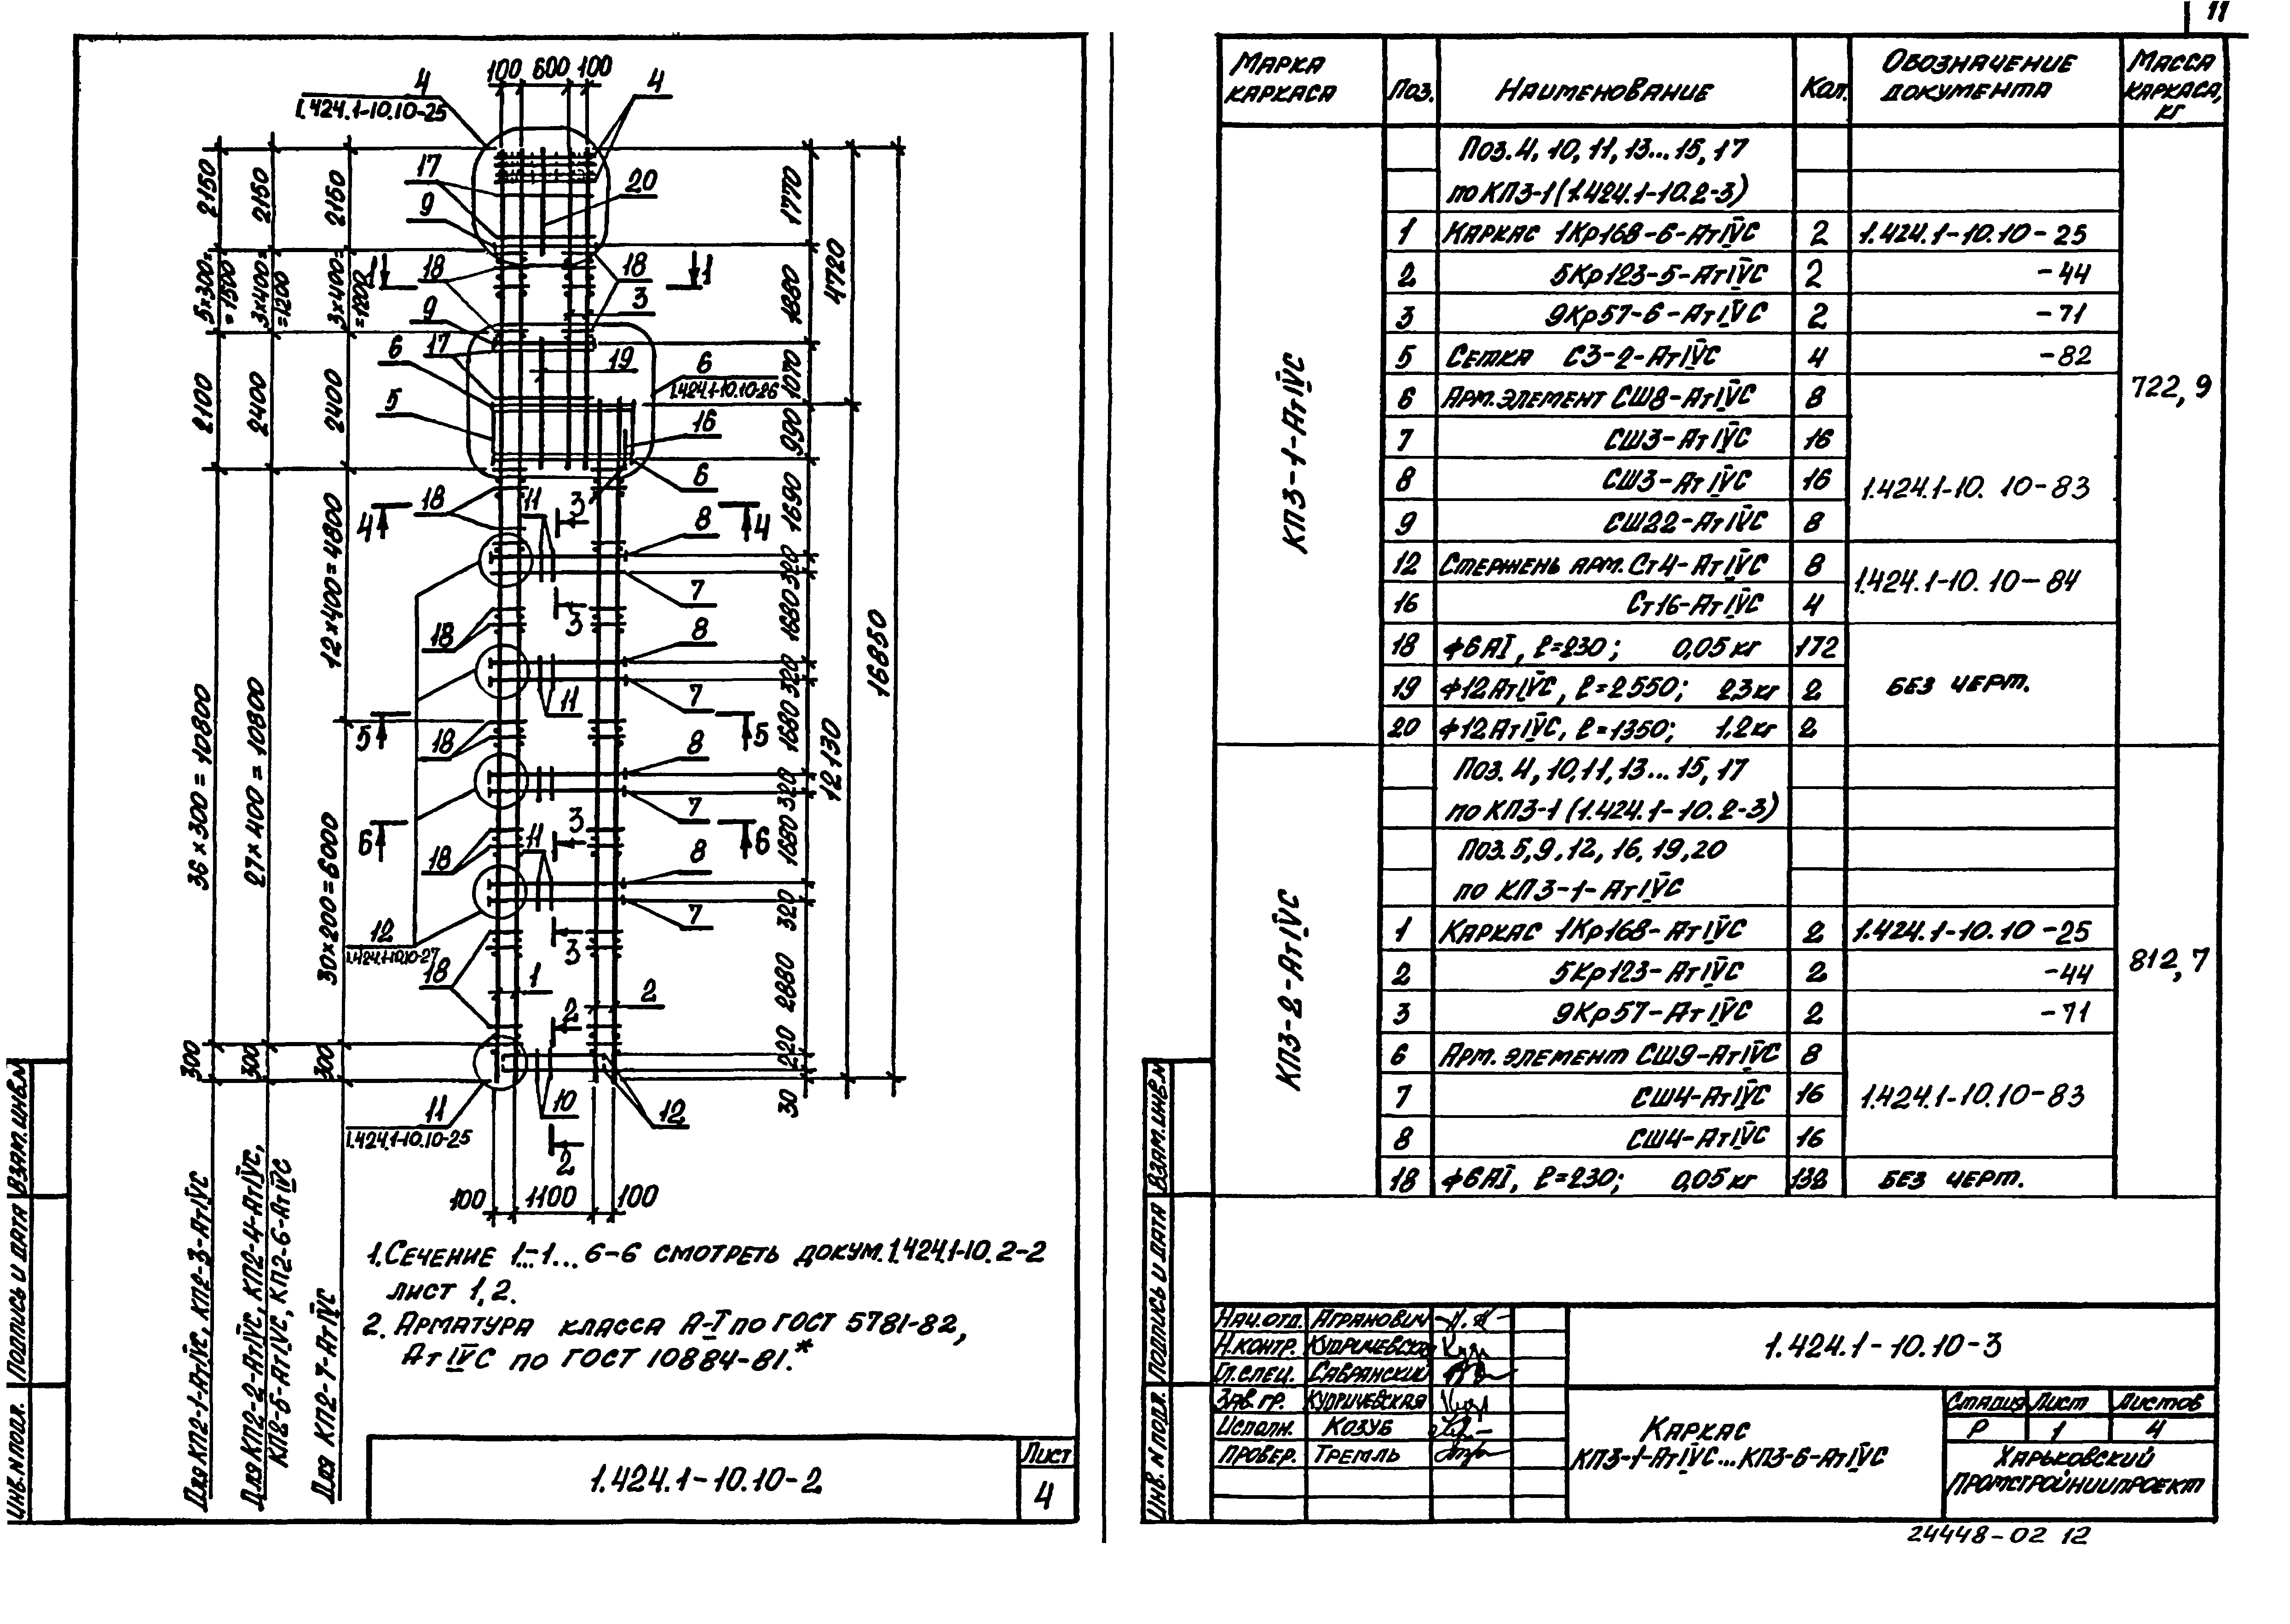 11
100 600 100
4
1.424.1-10.10-25
4
17
20
9
18
18
1 1
3
9
6
17
19
6
1.424.1-10.10-26
5
16
6
2150
2150
2150
1770
5×300=
=1500
3×400=
=1200
3×400=
=1200
1880
4720
2100
2400
2400
1070
990
4 18 11 3 8 4
1690
12×400=4800
320
7
3
1680
18
8
320
11
7
16850
36×300=10800
27×400=10800
5 18 8 5
1680
12130
320
7
6 3 6
1680
18
11
8
30×200=6000
320
7
12
1.424.1-10.10-27
3
18
1
2
2880
2
220
300
300
300
30
11
1.424.1-10.10-25
10
12
2
100 1100 100
Для КП2-1-АтIVС, КП2-3-АтIVС
Для КП2-2-АтIVС, КП2-4-АтIVС,
КП2-5-АтIVС, КП2-6-АтIVС
Для КП2-7-АтIVС
1. Сечение 1-1... 6-6 смотреть докум. 1.424.1-10.2-2
лист 1, 2.
2. Арматура класса А-I по ГОСТ 5781-82,
АтIVС по ГОСТ 10884-81.*
1.424.1-10.10-2
Лист
4
Инв.N подл. Подпись и дата Взам.инв.N
Марка каркаса Поз. Наименование Кол. Обозначение документа Масса каркаса, кг
КП3-1-АтIVС
Поз. 4, 10, 11, 13...15, 17
по КП3-1 (1.424.1-10.2-3)
1 Каркас 1Кр168-6-АтIVС 2 1.424.1-10.10-25
2 5Кр123-5-АтIVС 2 -44
3 9Кр57-6-АтIVС 2 -71
5 Сетка С3-2-АтIVС 4 -82
722,9
6 Арм.элемент СШ8-АтIVС 8
7 СШ3-АтIVС 16
8 СШ3-АтIVС 16 1.424.1-10.10-83
9 СШ22-АтIVС 8
12 Стержень арм. Ст4-АтIVС 8 1.424.1-10.10-84
16 Ст16-АтIVС 4
18 ф6АI, ℓ=230; 0,05кг 172
19 ф12АтIVС, ℓ=2550; 2,3кг 2 без черт.
20 ф12АтIVС, ℓ=1350; 1,2кг 2
КП3-2-АтIVС
Поз. 4, 10, 11, 13...15, 17
по КП3-1 (1.424.1-10.2-3)
Поз. 5, 9, 12, 16, 19, 20
по КП3-1-АтIVС
1 Каркас 1Кр168-АтIVС 2 1.424.1-10.10-25
812,7
2 5Кр123-АтIVС 2 -44
3 9Кр57-АтIVС 2 -71
6 Арм. элемент СШ9-АтIVС 8
7 СШ4-АтIVС 16 1.424.1-10.10-83
8 СШ4-АтIVС 16
18 ф6АI, ℓ=230; 0,05кг 132 без черт.
Инв.N подл. Подпись и дата Взам.инв.N
Нач.отд. Агранович
Н.контр. Кудричевская
Гл.спец. Савранский
Зав.гр. Кудричевская
Исполн. Козуб
Провер. Тремль
1.424.1-10.10-3
Каркас
КП3-1-АтIVС...КП3-6-АтIVС
Стадия Лист Листов
Р 1 4
Харьковский
Промстройниипроект
24448-02 12